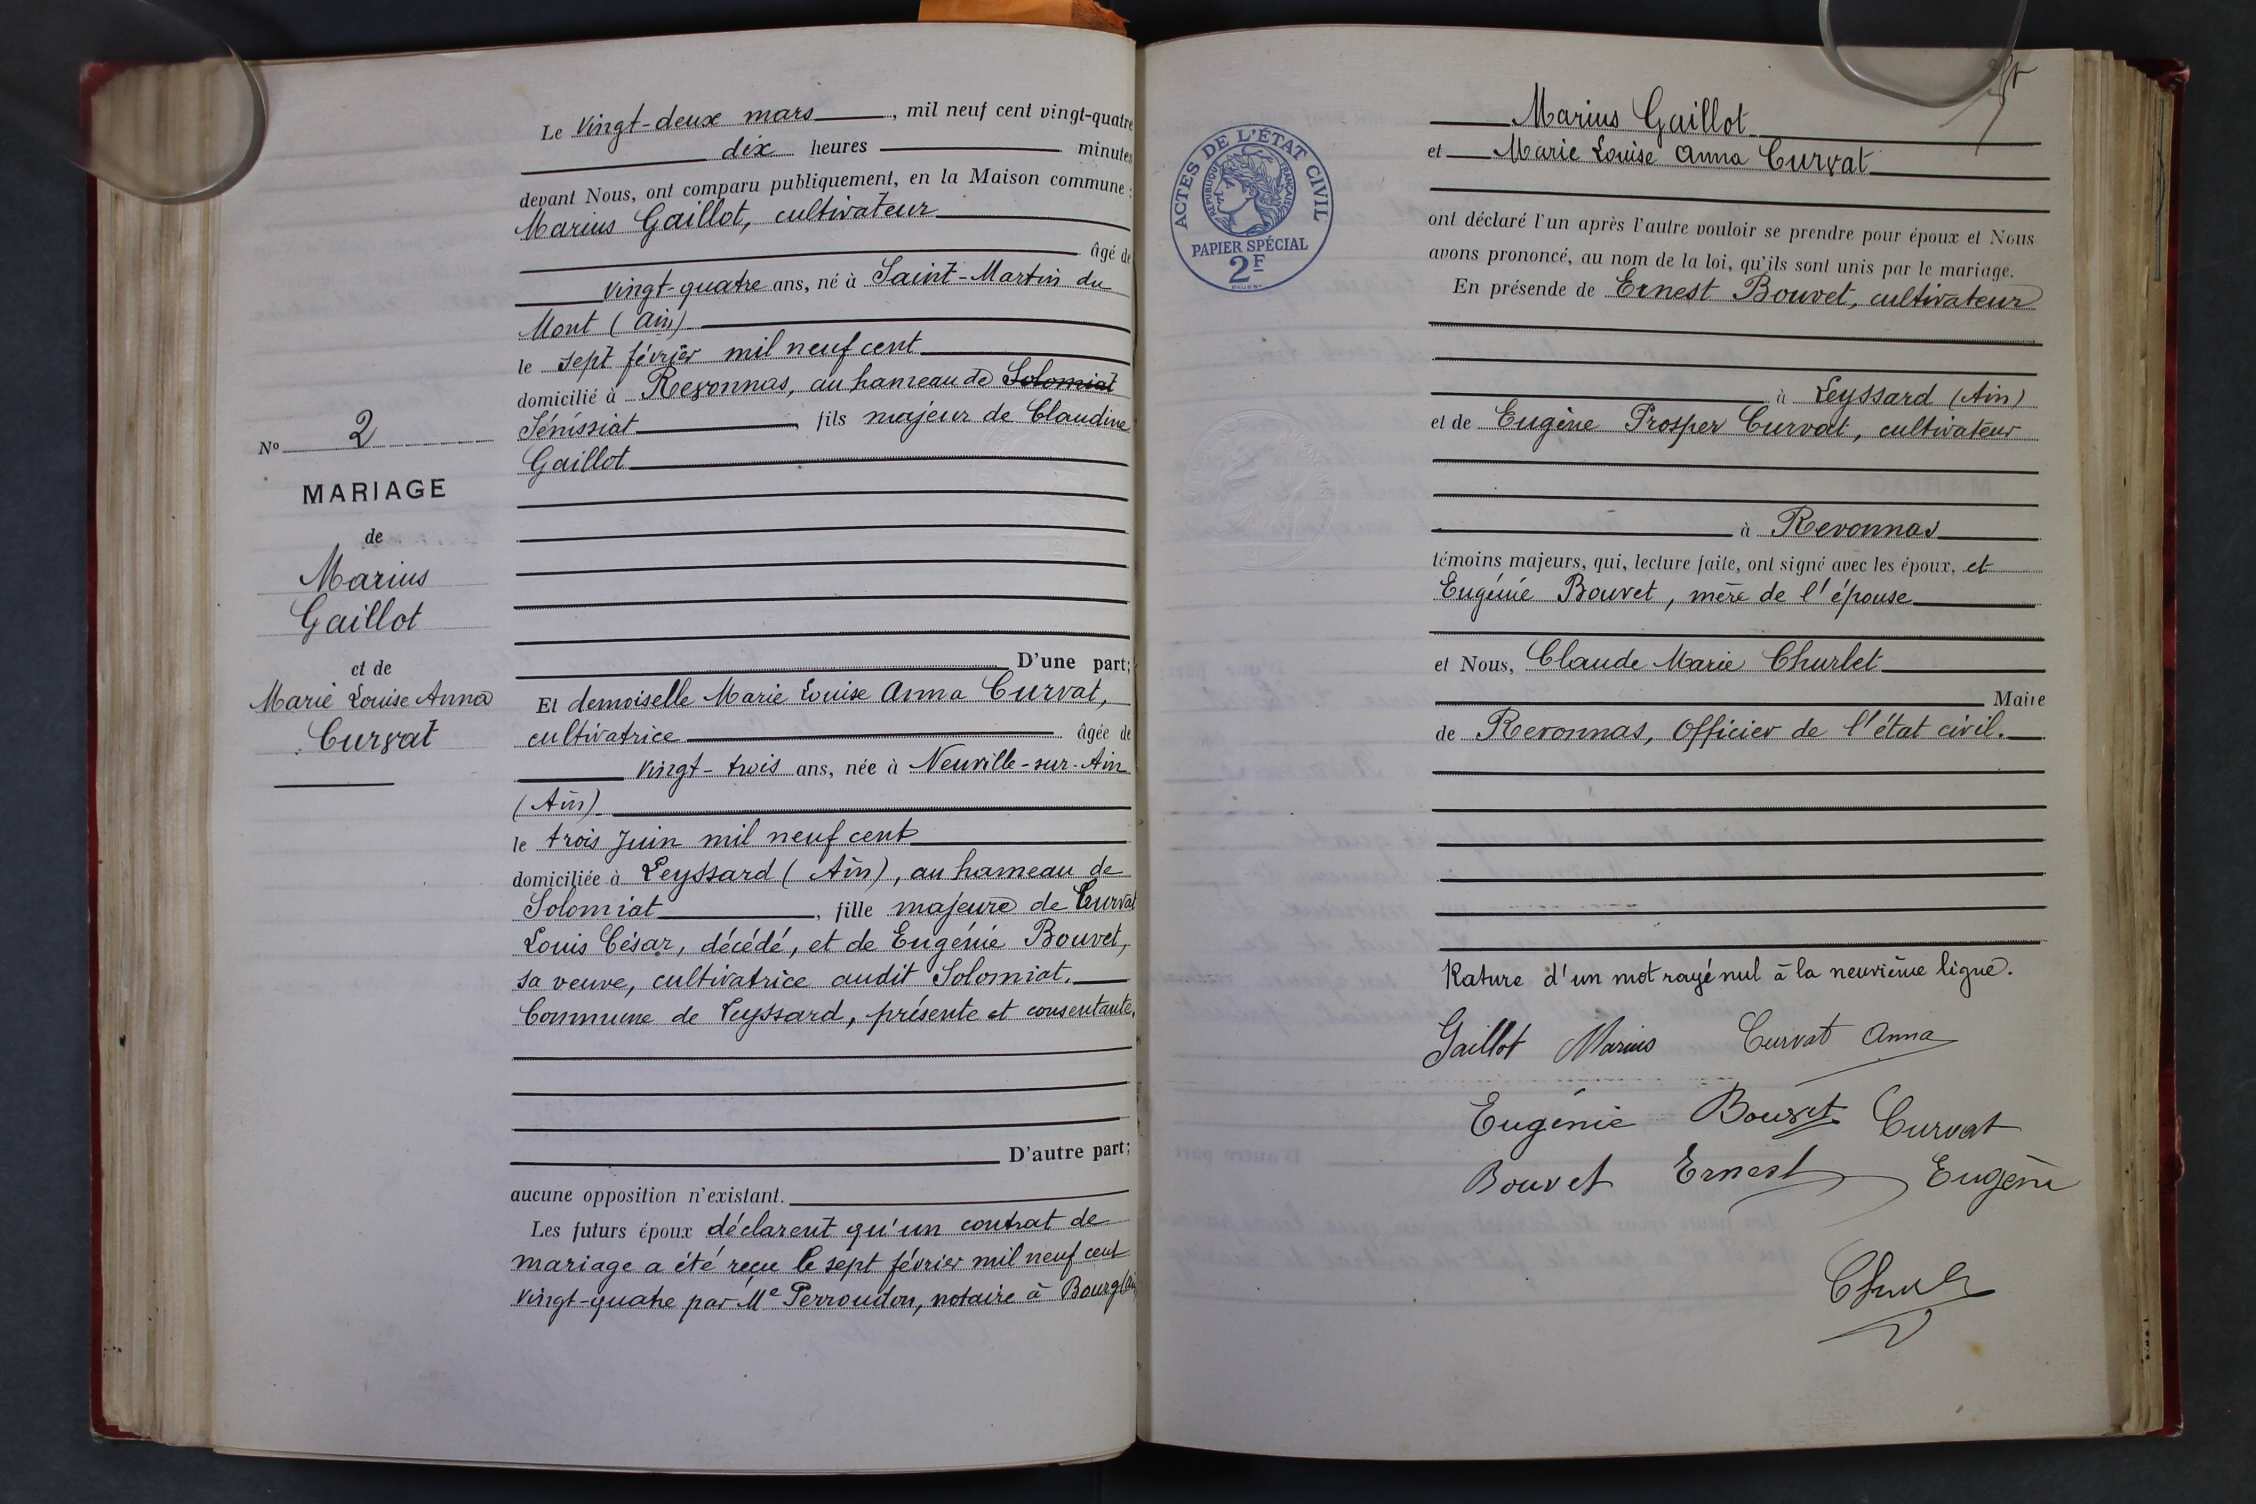 Le vingt-deux mars, mil neuf cent vingt-quatre
dix heures minutes
devant Nous, ont comparu publiquement, en la Maison commune :
Marius Gaillot, cultivateur
âgé de
vingt-quatre ans, né à Saint-Martin du
Mont (Ain)
le sept février mil neuf cent
domicilié à Revonnas, au hameau de Solomiat
Sénissiat, fils majeur de Claudine
Gaillot
No 2
MARIAGE
de
Marius
Gaillot
et de
Marie Louise Anna
Curvat
D'une part;
Et demoiselle Marie Louise Anna Curvat,
cultivatrice âgée de
vingt-trois ans, née à Neuville-sur-Ain
(Ain)
le trois Juin mil neuf cent
domiciliée à Leyssard (Ain), au hameau de
Solomiat, fille majeure de Curvat
Louis César, décédé, et de Eugénie Bouvet,
sa veuve, cultivatrice audit Solomiat.
Commune de Leyssard, présente et consentante.
D'autre part;
aucune opposition n'existant.
Les futurs époux déclarent qu'un contrat de
mariage a été reçu le sept février mil neuf cent
vingt-quatre par Me Perroudon, notaire à Bourg (Ain
ACTES DE L'ÉTAT CIVIL
RÉPUBLIQUE FRANÇAISE
PAPIER SPÉCIAL
2F
Marius Gaillot
et Marie Louise Anna Curvat
ont déclaré l'un après l'autre vouloir se prendre pour époux et Nous
avons prononcé, au nom de la loi, qu'ils sont unis par le mariage.
En présende de Ernest Bouvet, cultivateur
à Leyssard (Ain)
et de Eugène Prosper Curvat, cultivateur
à Revonnas
témoins majeurs, qui, lecture faite, ont signé avec les époux, et
Eugénie Bouvet, mère de l'épouse
et Nous, Claude Marie Churlet
Maire
de Revonnas, Officier de l'état civil.
Rature d'un mot rayé nul à la neuvième ligne.
Gaillot Marius Curvat Anna
Eugénie Bouvet Curvat
Bouvet Ernest Eugène